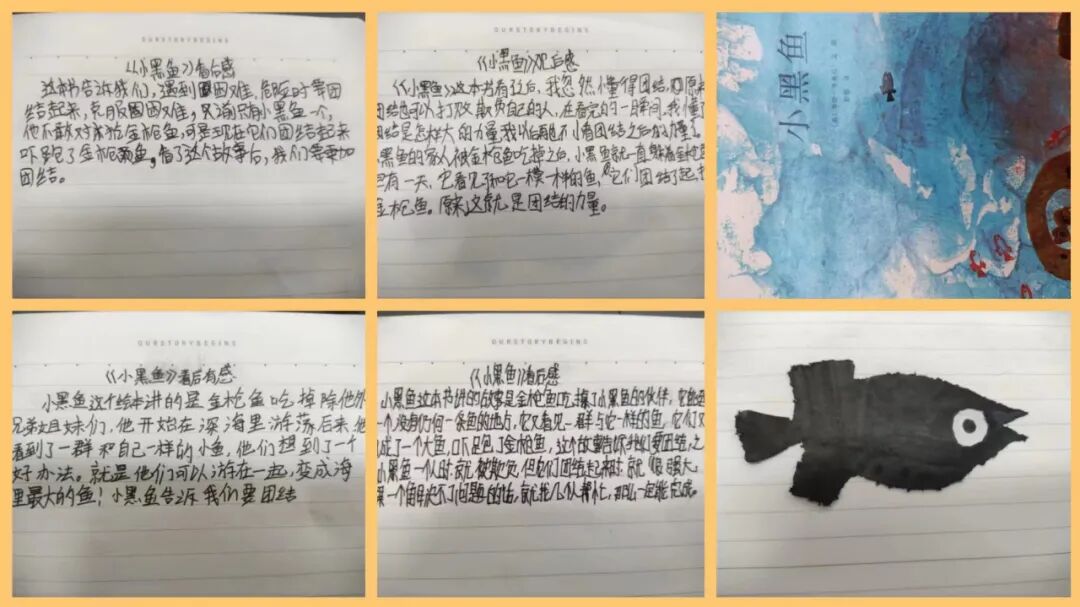 OURSTORYBEGINS
《小黑鱼》看后感
这本书告诉我们，遇到困难、危险时要团
结起来，克服困难，只有小黑鱼一个，
他不敢对金枪鱼，可是现在它们团结起来
吓跑了金枪鱼。看了这个故事后，我们要更加
团结。
OURSTORYBEGINS
《小黑鱼》观后感
《小黑鱼》这本书看过后，我忽然懂得团结。原
团结也可以打败欺负自己的人，在看完的一瞬间，我懂了
团结是怎样大的力量，我以后再也不小看团结之后的力量了。
小黑鱼的家人被金枪鱼吃掉之后，小黑鱼就一直躲着金枪鱼
有一天，它看见了和它一模一样的鱼，它们团结了起
金枪鱼。原来这就是团结的力量。
小黑鱼
OURSTORYBEGINS
《小黑鱼》看后有感
小黑鱼这个绘本讲的是金枪鱼吃掉除他外
兄弟姐妹们，他开始在深海里游荡后来他
看到了一群和自己一样的小鱼，他们想到了一个
好办法。就是他们可以游在一起，变成海
里最大的鱼！小黑鱼告诉我们要团结
OURSTORYBEGINS
《小黑鱼》看后感
小黑鱼这本书讲的故事是金枪鱼吃掉了小黑鱼的伙伴，它
一个没有任何一条鱼的地点，它又看见一群与它一样的鱼，它们又
成了一个大鱼，吓跑了金枪鱼，这个故事告诉我们要团结，
小黑鱼一个时就被欺负，但它们团结起来时就
某一个解决不了问题的话，就找几个人帮忙，那么一定能完成。